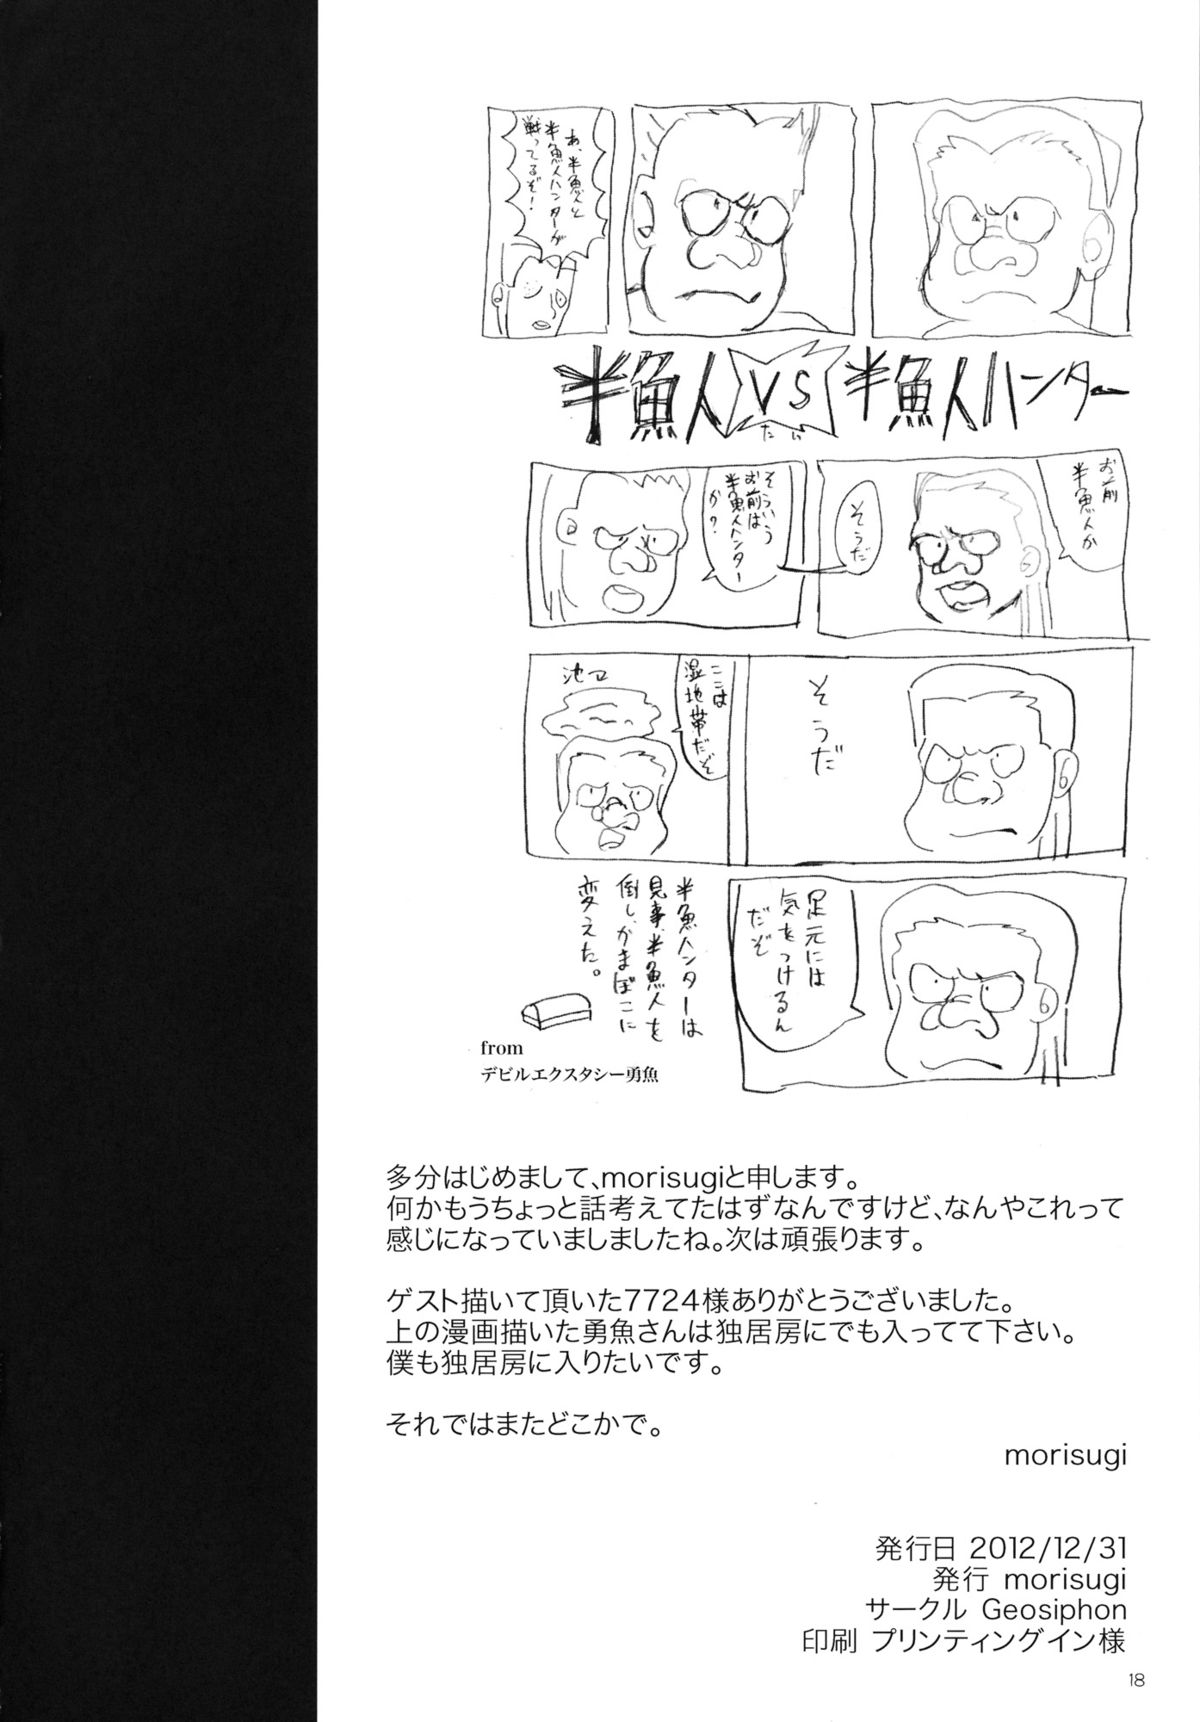 あ、半魚人と
半魚人ハンターが
戦ってるぞ!
半魚人VS半魚人ハンター
たい
お前
半魚人か
そうだ
そういう
お前は
半魚人ハンター
か?
そうだ
ここは
湿地帯だぞ
足元には
気をつけるん
だぞ
半魚人ハンターは
見事、半魚人を
倒し、かまぼこに
変えた。
from
デビルエクスタシー勇魚
多分はじめまして、morisugiと申します。
何かもうちょっと話考えてたはずなんですけど、なんやこれって
感じになっていましましたね。次は頑張ります。
ゲスト描いて頂いた7724様ありがとうございました。
上の漫画描いた勇魚さんは独居房にでも入ってて下さい。
僕も独居房に入りたいです。
それではまたどこかで。
morisugi
発行日 2012/12/31
発行 morisugi
サークル Geosiphon
印刷 プリンティングイン様
18